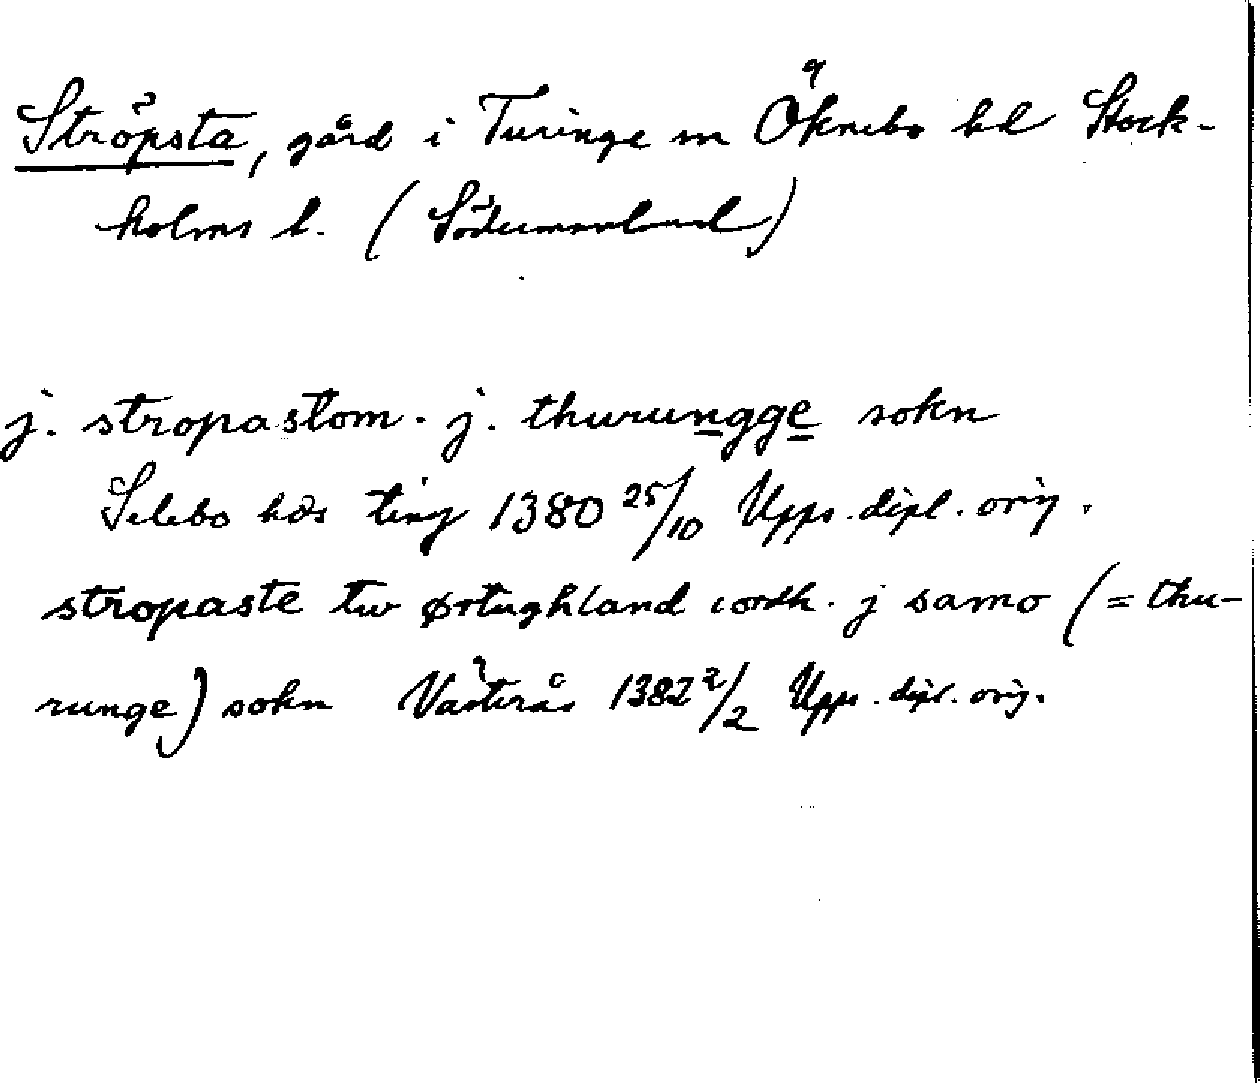 Ströpsta, gård i Turinge sn Öknebo hd Stock-
holms l. (Södermanland)
j. stropastom. j. thurungge sokn
Selebo hds ting 1380 25/10 Upps. dipl. orig.
stropaste tw ørtughland iordh. j samo (= thu-
runge) sokn Västerås 1382 2/2 Upps. dipl. orig.